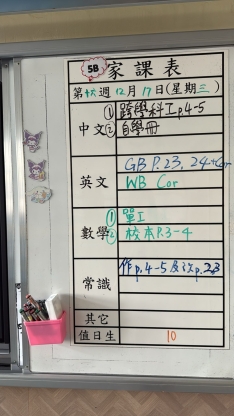 5B 家課表
第 週 12月17日(星期三)
中文 ① 跨學科工p.4-5
② 自學冊
英文 GB P.23, 24+Cor
WB Cor
數學 ① 單工
② 校本P.3-4
常識 作p.4-5及改p.23
其它
值日生 10